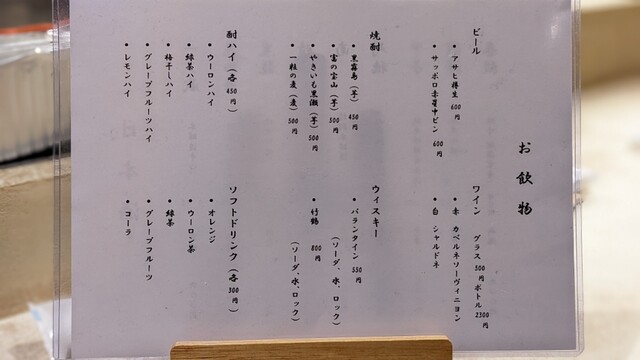 お飲物
ビール
・アサヒ樽生 600円
・サッポロ赤星中ビン 600円
ワイン グラス500円 ボトル2300円
・赤 カベルネソーヴィニヨン
・白 シャルドネ
焼酎
・黒霧島（芋） 450円
・富の宝山（芋） 500円
・やきいも黒瀬（芋） 500円
・一粒の麦（麦） 500円
ウィスキー
・バランタイン 550円
（ソーダ、水、ロック）
・竹鶴 800円
（ソーダ、水、ロック）
酎ハイ（各450円）
・ウーロンハイ
・緑茶ハイ
・梅干しハイ
・グレープフルーツハイ
・レモンハイ
ソフトドリンク（各300円）
・オレンジ
・ウーロン茶
・緑茶
・グレープフルーツ
・コーラ